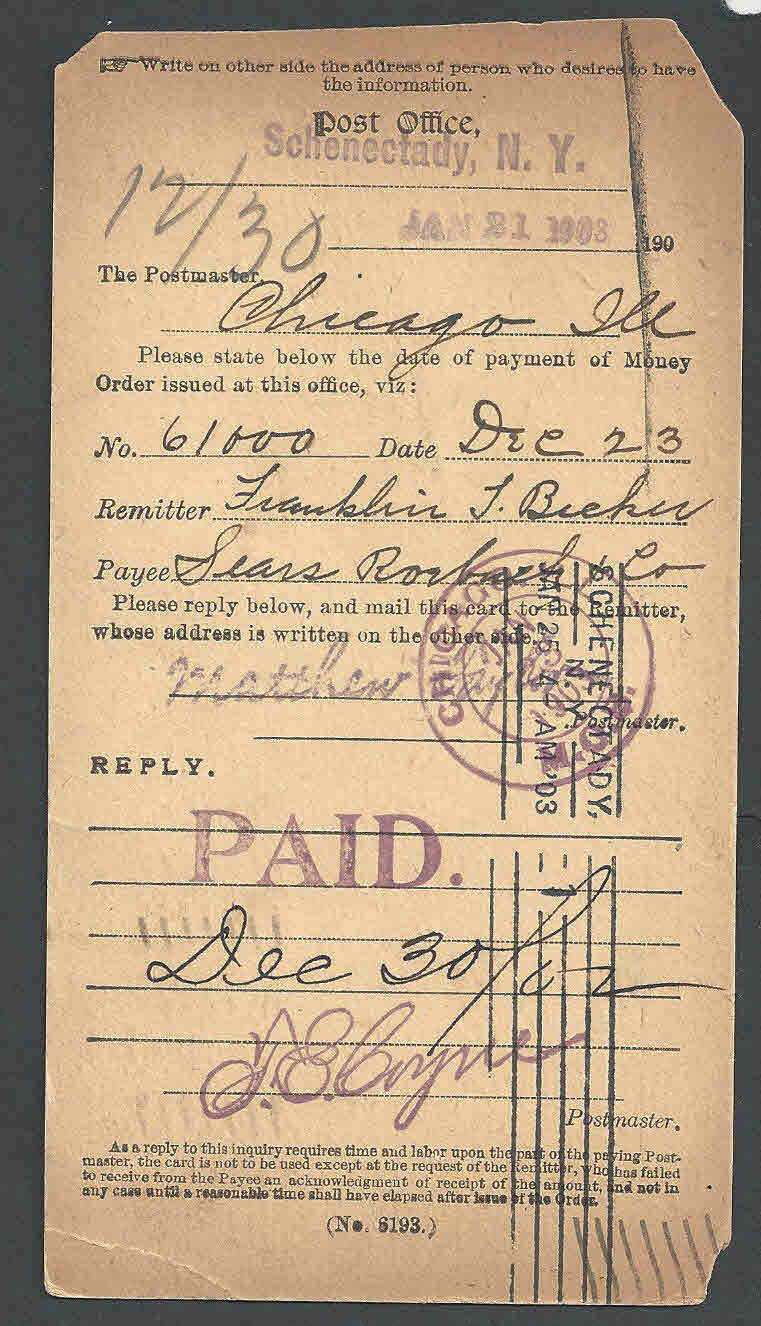 ☞ Write on other side the address of person who desires to have
the information.
Post Office,
Schenectady, N. Y.
12/30
JAN 21 1903 190
The Postmaster,
Chicago Ill
Please state below the date of payment of Money
Order issued at this office, viz:
No. 61000 Date Dec 23
Remitter Franklin T. Becker
Payee Sears Roebuck Co
Please reply below, and mail this card to the Remitter,
whose address is written on the other side.
Matthew
Postmaster.
CHICAGO
M.O.
SCHENECTADY,
N.Y.
25 4 AM '03
REPLY.
PAID.
1
Dec 30/02
Coyne
Postmaster.
As a reply to this inquiry requires time and labor upon the part of the paying Post-
master, the card is not to be used except at the request of the Remitter, who has failed
to receive from the Payee an acknowledgment of receipt of the amount, and not in
any case until a reasonable time shall have elapsed after issue of the Order.
(No. 6193.)